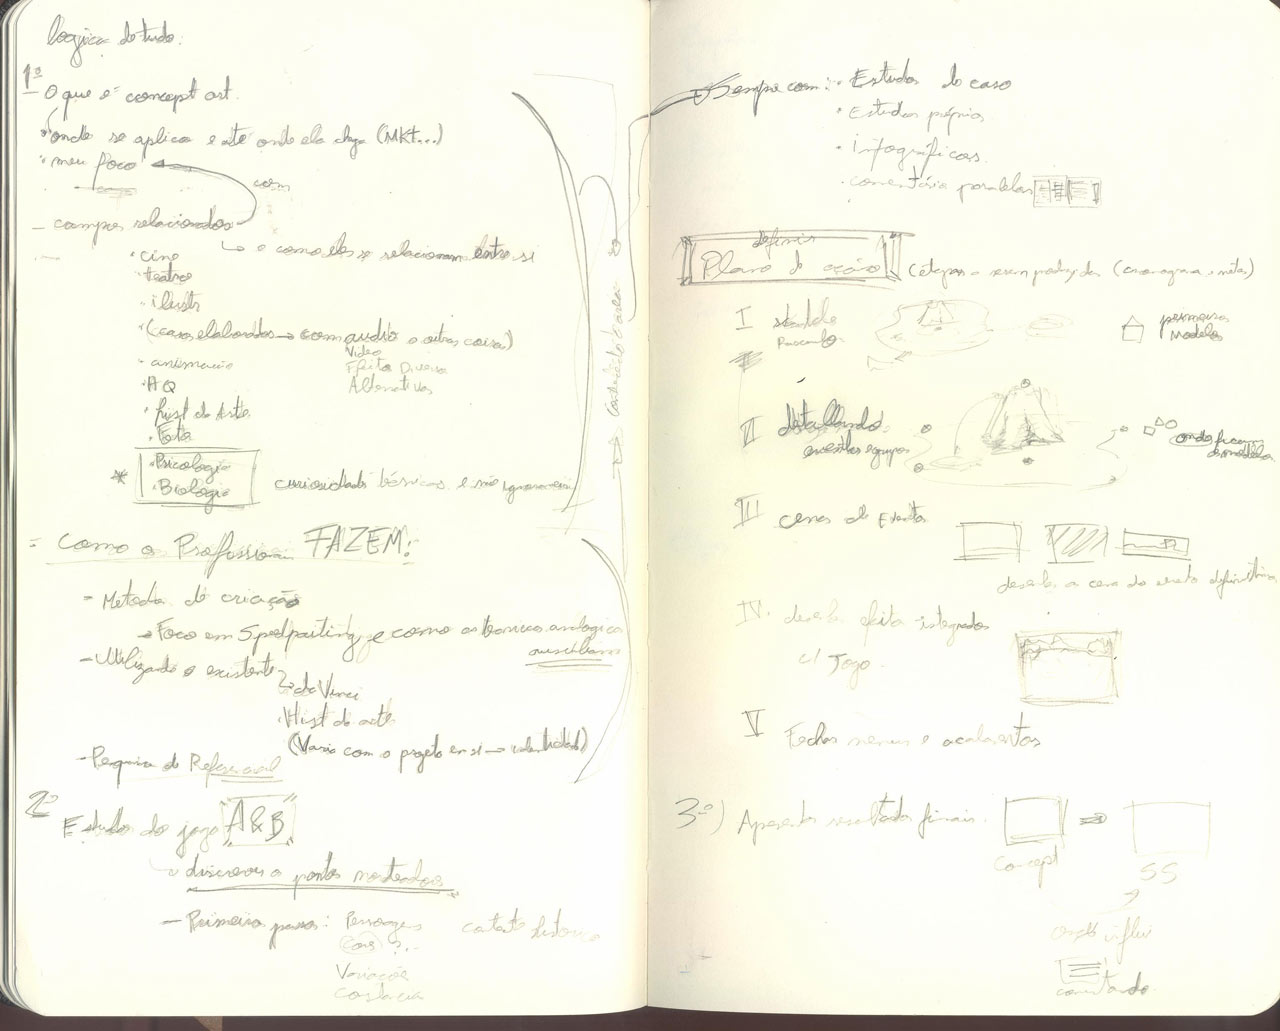 logica do tudo:
1º
O que é concept art.
• onde se aplica e até onde ela chega (MKT...)
• meu foco
com
- campos relacionados
↳ e como eles se relacionam entre si
• cine
• teatro
• ilustr
• (casos elaborados → com audio e outras coisas)
Video
• animação
Efeito Diverso
• AQ
Alternativas
• hist da Arte
• Foto
* • Psicologia
• Biologia
curiosidades técnicas e não ignoram
= Como os Profissionais FAZEM:
- Metodo de criação
→ Foco em Spedpaiting e como as tecnicas analogicas auxiliam
- Utilizando o existente
↳ da Vinci
• Hist da arte
(Varia com o projeto em si →
- Pesquisa de Referencial
2º
Estudos do jogo "A&B"
discrever os pontos norteadores
- Primeiro passo: Personagens
contexto historico
?..
Variações
→ Sempre com: • Estudos de caso
• Estudos próprios
• infográficos
• comentários paralelos
definir
Plano de ação
(etapas a serem produzidas (cronograma e metas)
I
primeiros
Modelos
II detalhando
onde ficam
os modelos
III cenas de Evento
desenho a cena do evento definitiva
IV. efeito integrados
c/ Jogo
V Fechar menus e acabamentos
3º) Apresentar resultados finais.
Concept
SS
onde influi
comentando